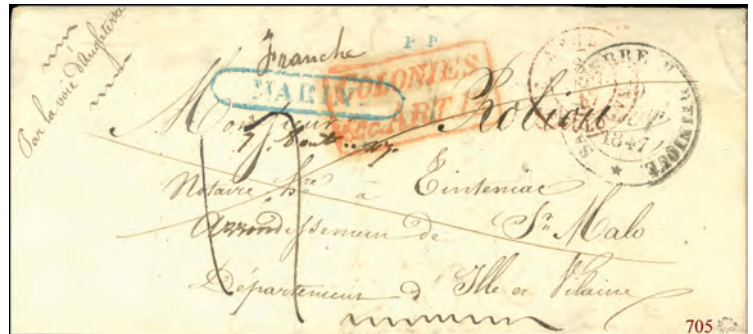 Par la voie d'Angleterre
P.P.
Franche
MARIN
COLONIES
ART
SAINT PIERRE MARTINIQUE
1847
Monsieur Robiou
7 Août 47.
Notaire hre à Tinteniac
Arrondissement de St Malo
Département d'Ille et Vilaine
705